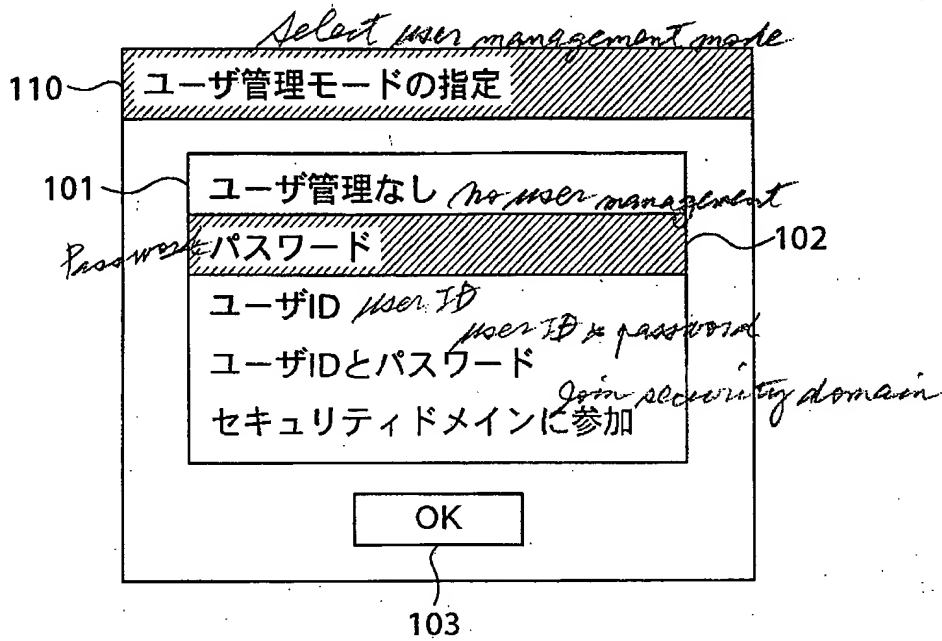 Select user management mode
110
ユーザ管理モードの指定
101
ユーザ管理なし no user management
Password パスワード
102
ユーザID user ID
user ID & password
ユーザIDとパスワード
Join security domain
セキュリティドメインに参加
OK
103